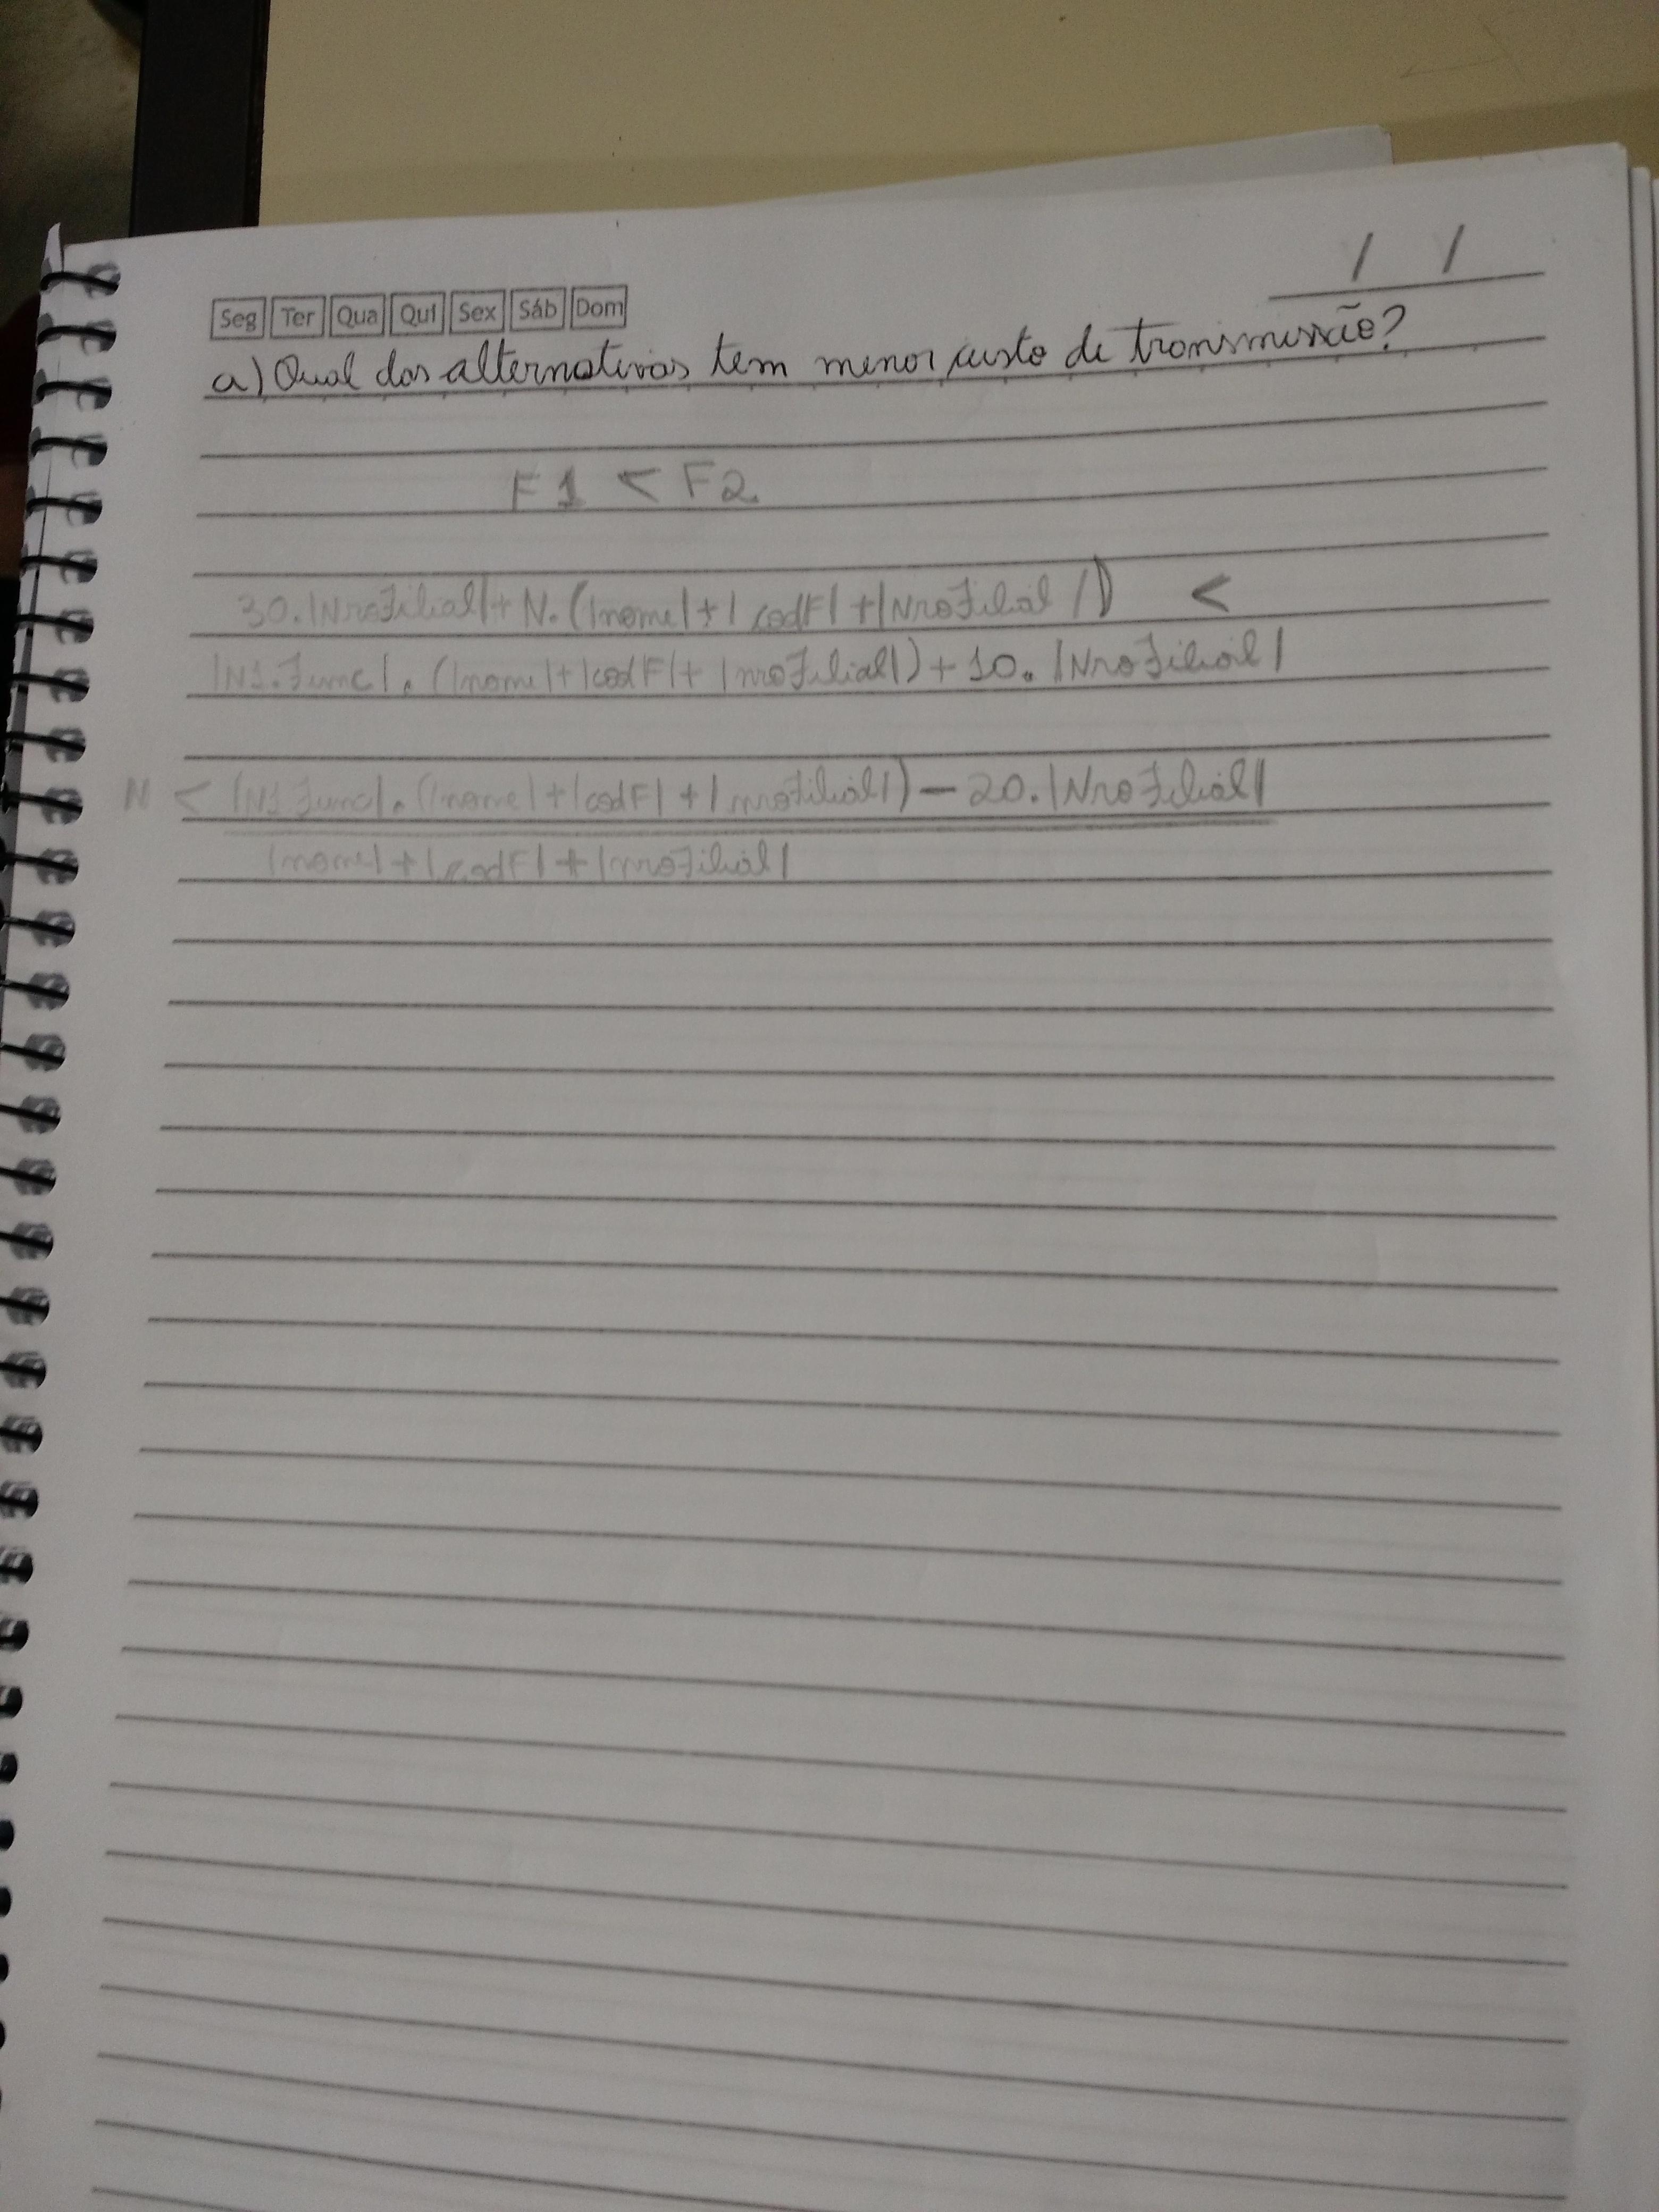 / /
Seg Ter Qua Qui Sex Sáb Dom
a) Qual das alternativas tem menor custo de transmissão?
F1 < F2
30.|NroFilial| + N.(|nome| + |codF| + |NroFilial|) <
|N1.Func|.(|nome| + |codF| + |nroFilial|) + 10.|NroFilial|
N < |N1.Func|.(|nome| + |codF| + |nroFilial|) - 20.|NroFilial|
|nome| + |codF| + |nroFilial|